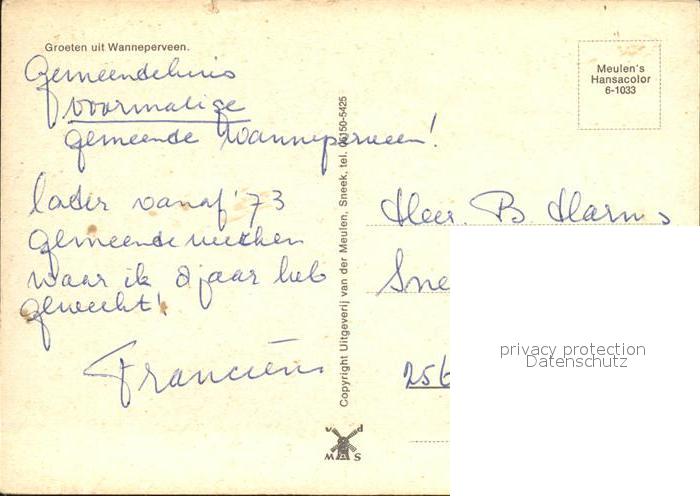 Groeten uit Wanneperveen.
Gemeentehuis
voormalige
gemeente Wanneperveen!
later vanaf '73
gemeentewerken
waar ik 8 jaar heb
gewerkt!
Franciens
Copyright Uitgeverij van der Meulen, Sneek, tel. 05150-5425
v d
M S
Meulen's
Hansacolor
6-1033
Heer. B Harms
Sne
256
privacy protection
Datenschutz